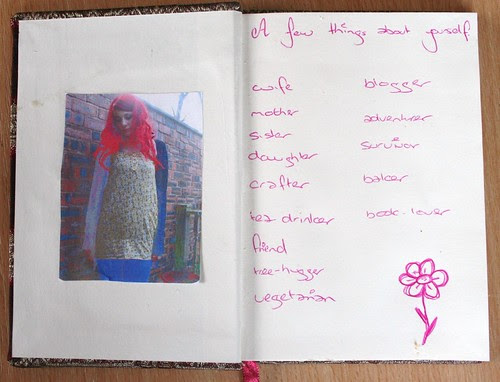 A few things about yourself
wife
mother
sister
daughter
crafter
tea drinker
friend
tree-hugger
vegetarian
blogger
adventurer
survivor
baker
book-lover